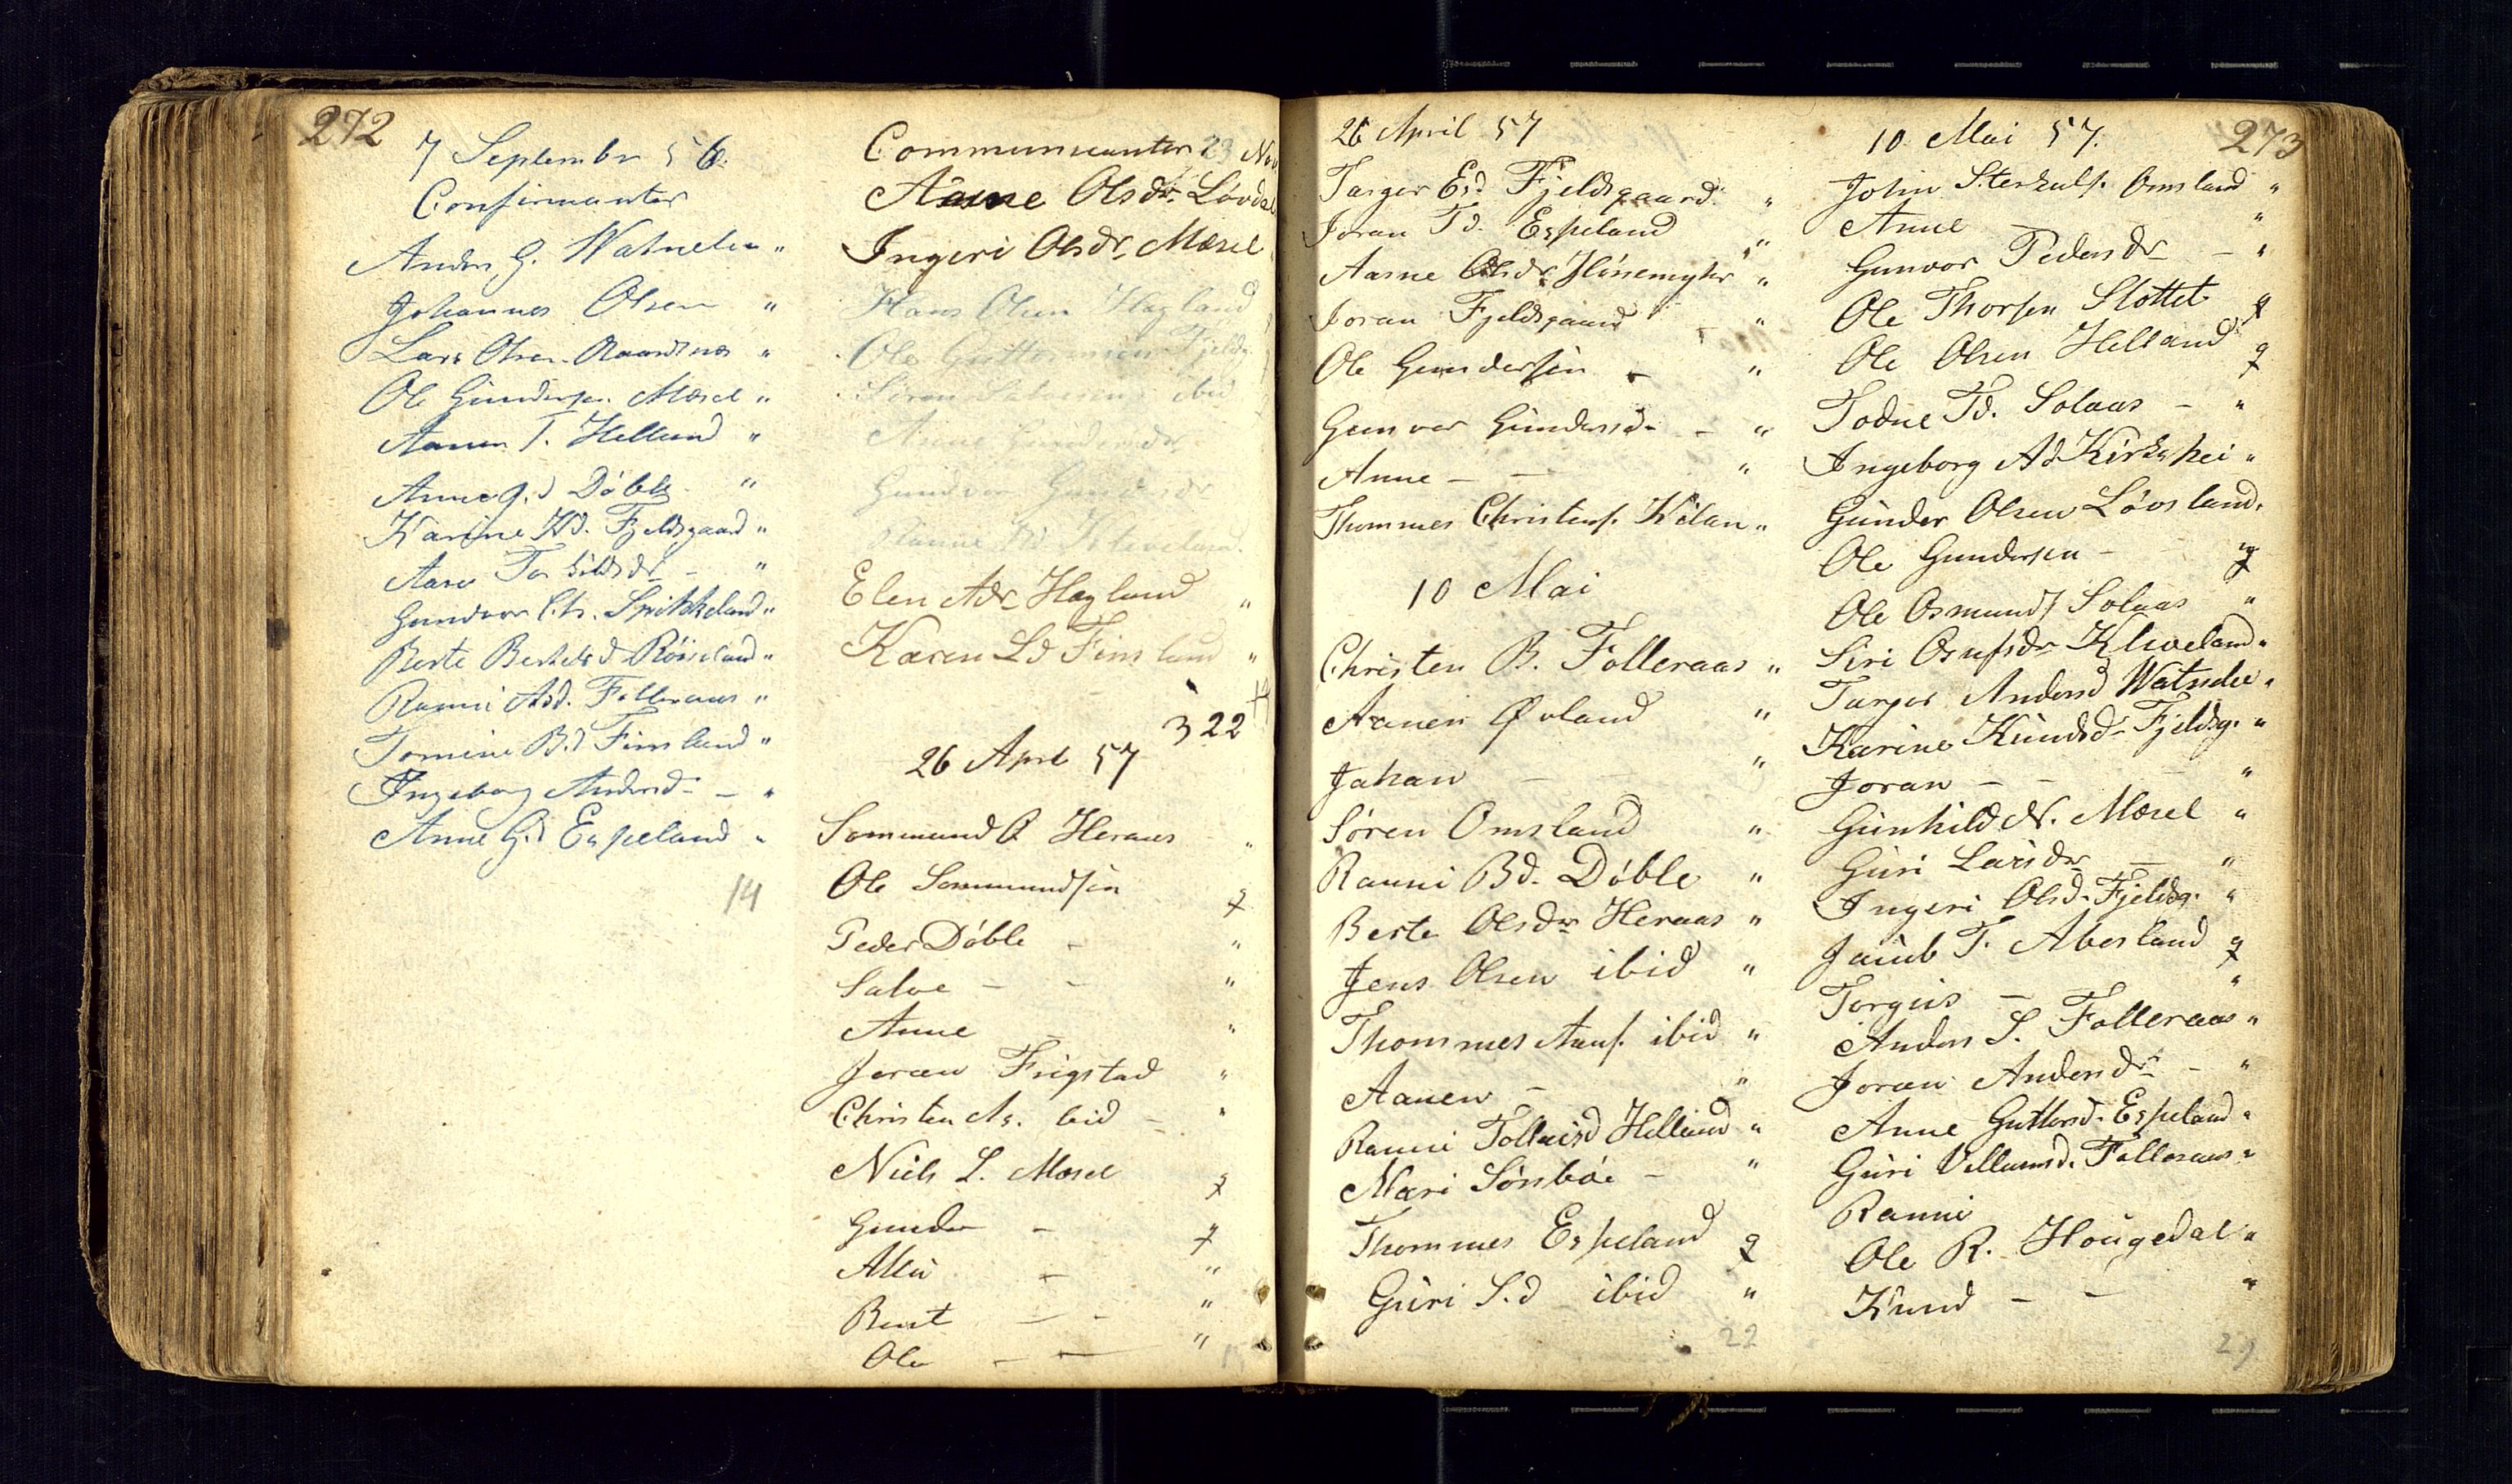 272
7 September 56.
Confirmanter
Anders G. Watnelien "
Johannes Olsen "
Lars Olsen "
Ole Gundersen Mæsel "
Aanen T. Helland "
Anne G.d Döble "
Karine Kd. Fjeldsgaard "
Aase Torkildsdr - "
Gundvor Ch. Spikkeland "
Berte Bertelsd Röiseland "
Ranni Asd. Folleraas "
Tomine B.d Finsland "
Ingeborg Andersd - "
Anne G.d Espeland "
14
Communicanter 23 Nov
Aasne Olsdr. Lövdal
Ingeri Olsdr. Mæsel
Hans Olsen Hægland
Ole Guttormsen Fjeldsg.
Sören Salvesen ibid
Anne Gundersdr
Gundvor Gundersdr
Elen Adr Hægland "
Karen Ld Finsland "
14
322
26 April 57
Sammund O Heraas "
Ole Sammundsen q
Peder Döble - "
Salve - - "
Anne - "
Joran Frigstad "
Christen As. ibid - "
Niels L. Mæsel q
Gunder - q
Alleu - "
Berut - - "
Ole - - "
26 April 57
Targer Esd Fjeldsgaard "
Joran Td. Espeland "
Aasne Olsdr Hönemyhr "
Joran Fjeldsgaard - "
Ole Gundersen - "
Gunvor Gundersd - - "
Anne - - "
Thommes Christens. Kilan "
10 Mai
Christen B. Folleraas "
Aanen Øvland "
Johan - - "
Sören Omsland "
Ranni Bd. Döble "
Berte Olsdr Heraas "
Jens Olsen ibid "
Thommes Aans. ibid "
Aanen - "
Ranni Tollacsd Helland "
Mari Sönböe - "
Thommes Espeland q
Guri S.d ibid "
22
273
10 Mai 57.
John Sterkulfs. Omsland "
Anne "
Gunvor Pedersdr - "
Ole Thorsen Slottet q
Ole Olsen Helland q
Todne Td. Solaas - "
Ingeborg Ad Kirkehei "
Gunder Olsen Lövsland "
Ole Gundersen - q
Ole Osmunds Solaas "
Siri Osufsdr Kleveland "
Targer Andersd Watnelie "
Karine Knudsd Fjeldsg. "
Joran - - "
Gunhild N. Mæsel "
Guri Larsdr - "
Ingeri Olsd. Fjeldsg. "
Jacob T. Abesland q
Torgius - "
Anders S. Folleraas "
Joran Andersdr - "
Anne Guttorsd. Espeland "
Guri Villumsd. Folleraas "
Ranni
Ole R. Hougedal "
Knud - - "
29